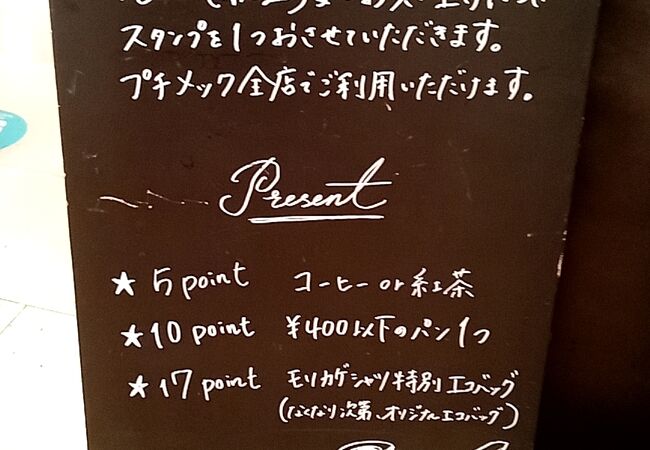 スタンプを1つおさせていただきます。
プチメック全店でご利用いただけます。
Present
★ 5 point コーヒー or 紅茶
★ 10 point ¥400以下のパン1つ
★ 17 point モリカゲシャツ特別エコバッグ
(なくなり次第、オリジナルエコバッグ)